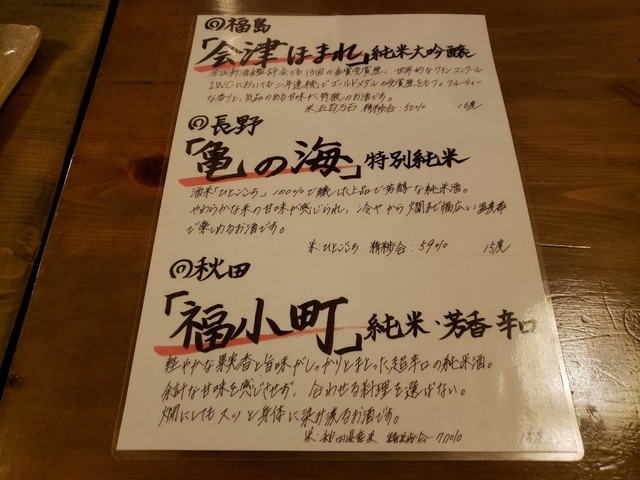 福島
「会津ほまれ」純米大吟醸
全国新酒鑑評会でも13回の金賞受賞歴、世界的なワインコンクール
IWCにおいても二年連続でゴールドメダルの受賞歴をもつ。フルーティー
な香りと、気品のある甘味が特徴のお酒です。
米:五百万石 精秒合:50% 16度
長野
「亀の海」特別純米
酒米「ひとごこち」100%で醸した上品で芳醇な純米酒。
やわらかな米の甘味が感じられ、冷やから燗まで幅広い温度帯
で楽しめるお酒です。
米:ひとごこち 精秒合:59% 15度
秋田
「福小町」純米・芳香辛口
軽やかな果実香と旨味がしっかりとまとった超辛口の純米酒。
余計な甘味を感じさせず、合わせる料理を選ばない。
燗にしてもスッと身体に染み渡るお酒です。
米:秋田県産米 精秒合:70% 15度